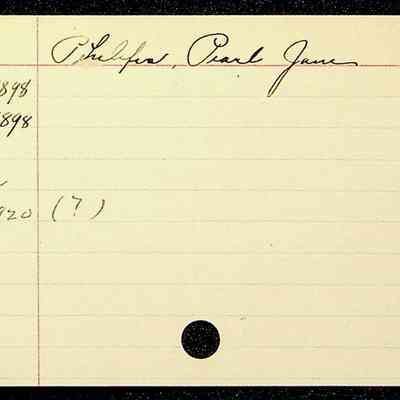 Philips, Pearl Jane
898
898
920 (?)